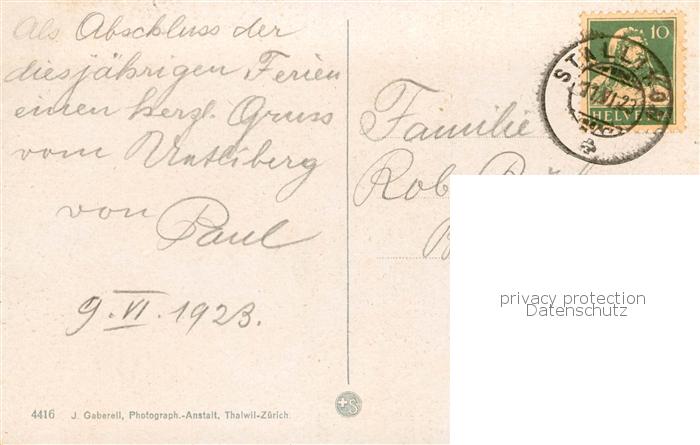 Als Abschluss der
diesjährigen Ferien
einen herzl. Gruss
vom Uetliberg
von Paul
9. VI. 1923.
Familie
Rob.
10
HELVETIA
STALLIKON
privacy protection
Datenschutz
4416 J. Gaberell, Photograph.-Anstalt, Thalwil-Zürich.